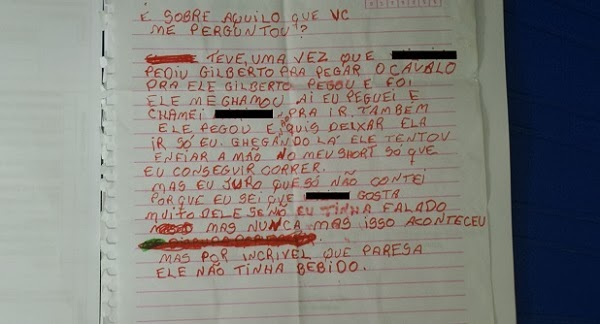 E SOBRE AQUILO QUE VC
ME PERGUNTOU?
TEVE, UMA VEZ QUE
PEDIU GILBERTO PRA PEGAR O CAVALO
PRA ELE GILBERTO PEGOU E FOI
ELE ME CHAMOU AI EU PEGUEI E
CHAMEI PRA IR TAMBEM
ELE PEGOU E NÃO QUIS DEIXAR ELA
IR SÓ EU. CHEGANDO LÁ ELE TENTOU
ENFIAR A MÃO NO MEU SHORT SÓ QUE
EU CONSEGUIR CORRER.
MAS EU JURO QUE SÓ NÃO CONTEI
PORQUE EU SEI QUE GOSTA
MUITO DELE SENÃO EU TINHA FALADO
MAS NUNCA MAS ISSO ACONTECEU
MAS POR INCRIVEL QUE PARESA
ELE NÃO TINHA BEBIDO.